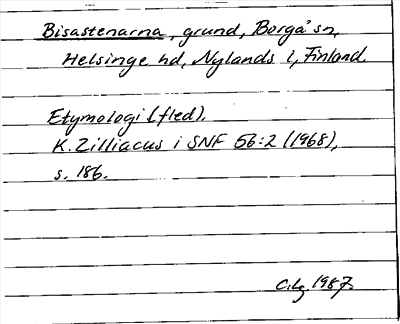 Bisastenarna, grund, Borgå sn,
Helsinge hd, Nylands l, Finland.
Etymologi (fled).
K. Zilliacus i SNF 56:2 (1968),
s. 186.
1987.